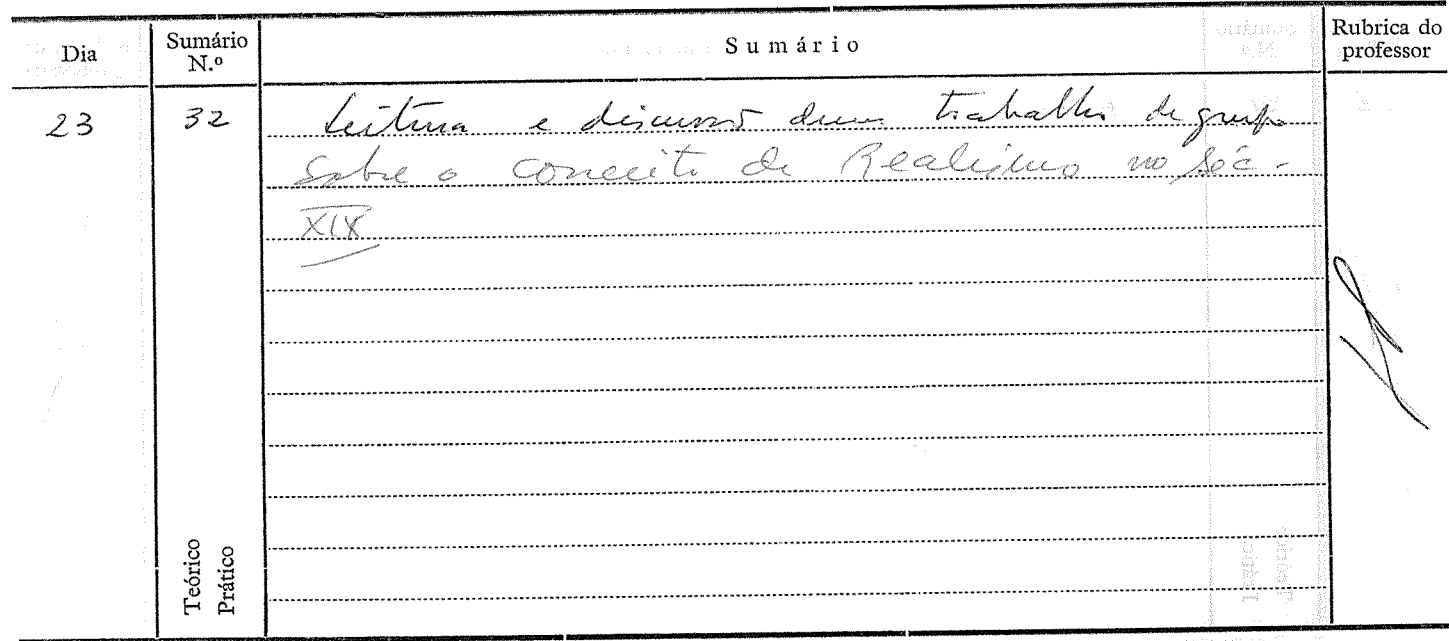 Dia
Sumário N.º
Sumário
Rubrica do professor
23
32
Leitura e discussão dum trabalho de grupo
sobre o conceito de Realismo no séc.
XIX
Teórico
Prático